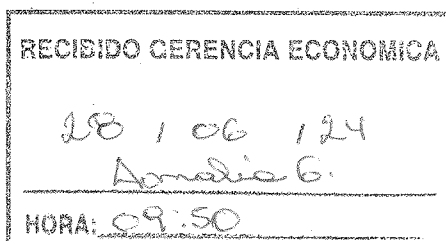 RECIBIDO GERENCIA ECONOMICA
28 / 06 / 24
Amalia G.
HORA: 09:50